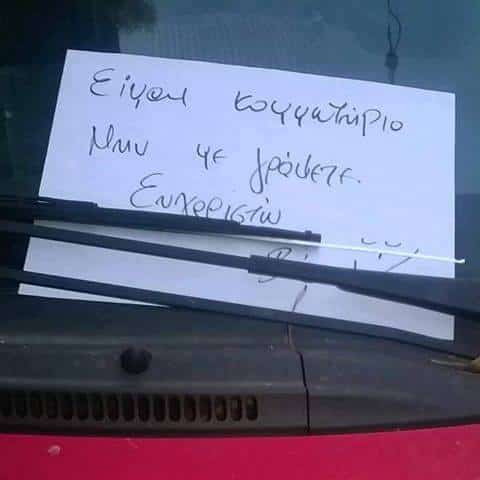 Είμαι κομματήριο
Μην με γράψετε.
Ευχαριστώ